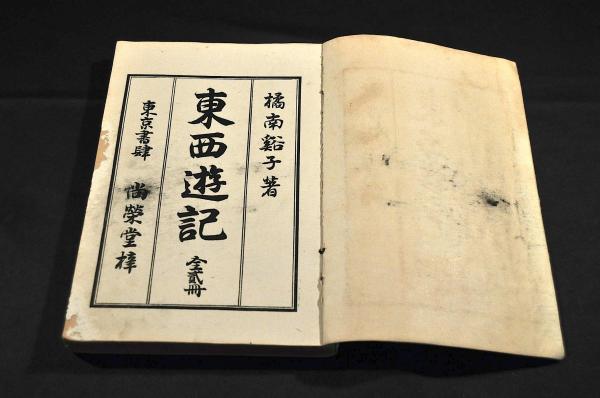 橘南谿子著
東西遊記 全貳冊
東京書肆 尚榮堂梓